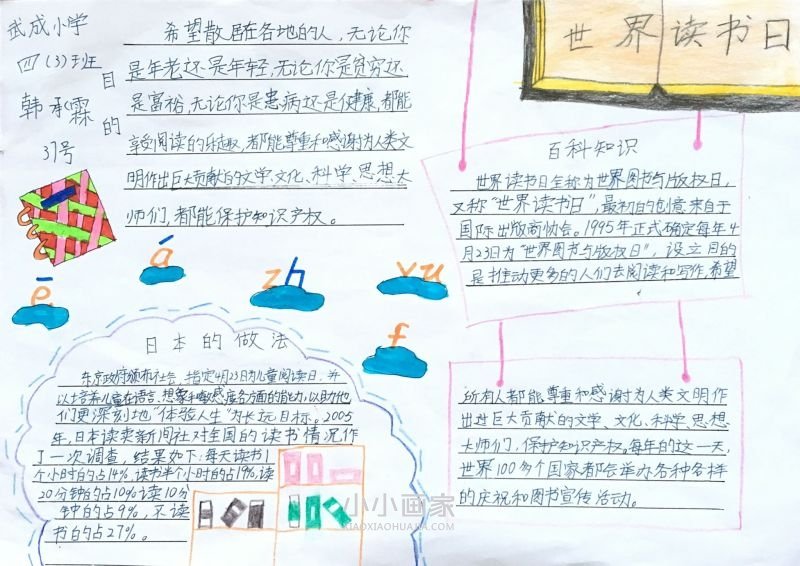 武成小学
四(3)班
韩承霖
37号
目的
希望散居在各地的人,无论你
是年老还是年轻,无论你是贫穷还
是富裕,无论你是患病还是健康,都能
享受阅读的乐趣,都能尊重和感谢为人类文
明作出巨大贡献的文学、文化、科学、思想大
师们,都能保护知识产权。
世界读书日
百科知识
世界读书日全称为世界图书与版权日,
又称“世界读书日”,最初的创意来自于
国际出版商协会。1995年正式确定每年4
月23日为“世界图书与版权日”,设立目的
是推动更多的人们去阅读和写作,希望
所有人都能尊重和感谢为人类文明作
出过巨大贡献的文学、文化、科学、思想
大师们,保护知识产权。每年的这一天,
世界100多个国家都会举办各种各样
的庆祝和图书宣传活动。
ē
á
zh
yu
f
日本的做法
东京政府颁布社会,指定4月23日为儿童阅读日,并
以培养儿童在语言、想象和敏感度各方面的能力,以助他
们更深刻地“体验人生”为长远目标。2005
年,日本读卖新闻社对全国的读书情况作
了一次调查,结果如下:每天读书1
个小时的占14%,读书半个小时的占19%,读
20分钟的占10%读10分
钟的占9%,不读
书的占27%。
小小画家
XIAOXIAOHUAJIA.COM